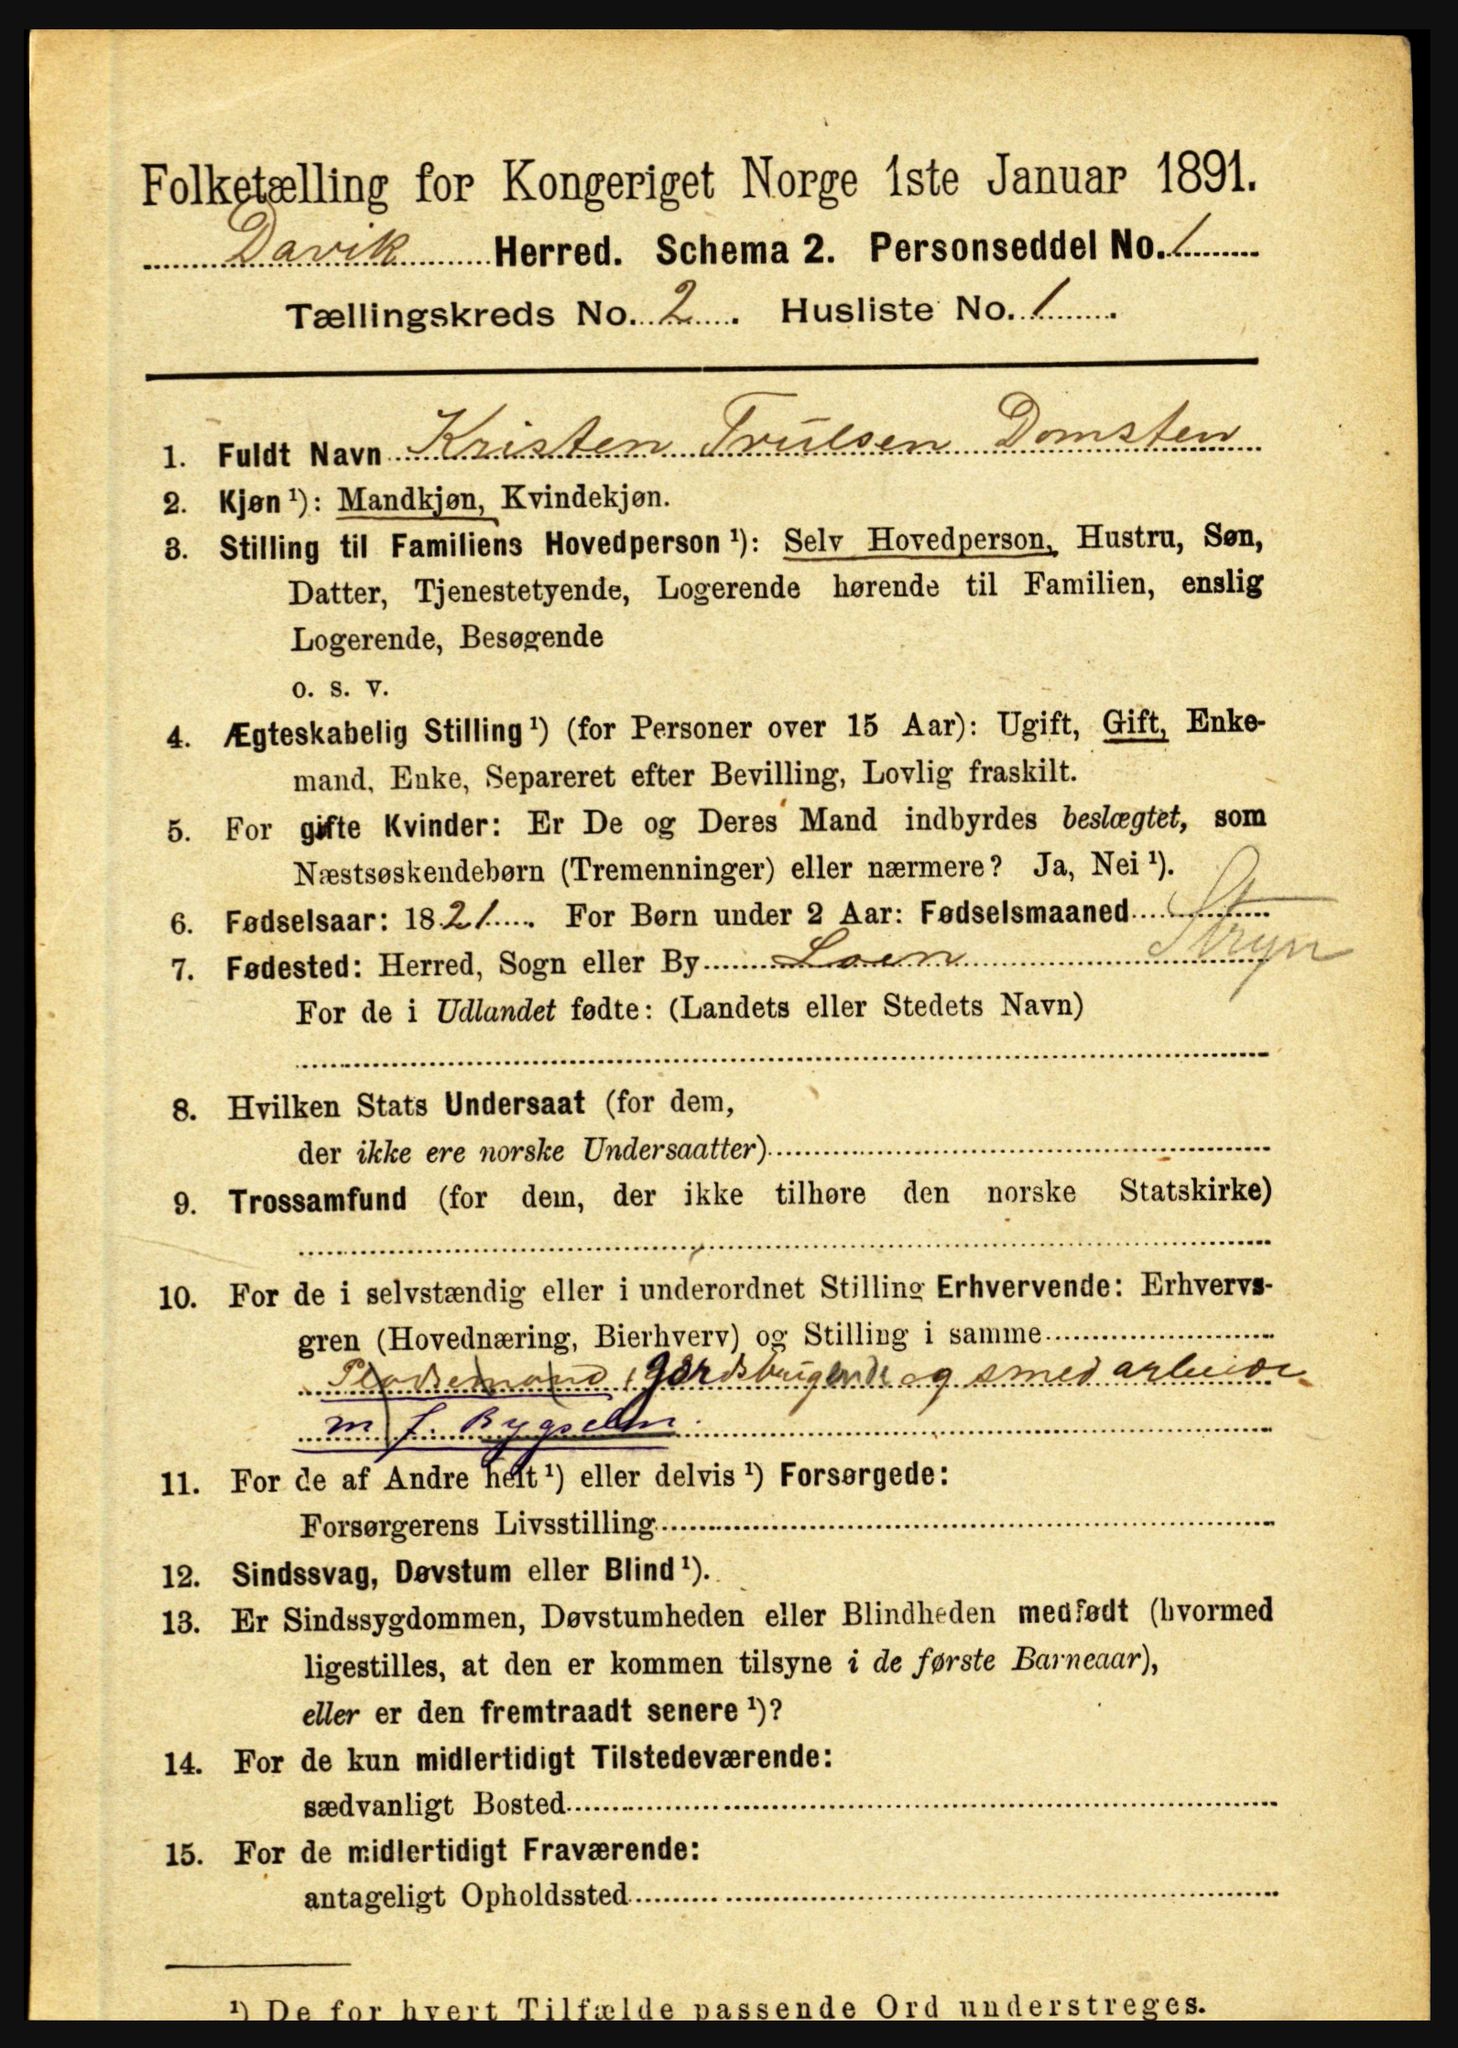 Folketælling for Kongeriget Norge 1ste Januar 1891.
Davik Herred. Schema 2. Personseddel No. 1
Tællingskreds No. 2. Husliste No. 1.
1. Fuldt Navn Kristen Trulsen Domsten
2. Kjøn ¹): Mandkjøn, Kvindekjøn.
3. Stilling til Familiens Hovedperson ¹): Selv Hovedperson, Hustru, Søn,
Datter, Tjenestetyende, Logerende hørende til Familien, enslig
Logerende, Besøgende
o. s. v.
4. Ægteskabelig Stilling ¹) (for Personer over 15 Aar): Ugift, Gift, Enke-
mand, Enke, Separeret efter Bevilling, Lovlig fraskilt.
5. For gifte Kvinder: Er De og Deres Mand indbyrdes beslægtet, som
Næstsøskendebørn (Tremenninger) eller nærmere? Ja, Nei ¹).
6. Fødselsaar: 1821. For Børn under 2 Aar: Fødselsmaaned
7. Fødested: Herred, Sogn eller By Loen Stryn
For de i Udlandet fødte: (Landets eller Stedets Navn)
8. Hvilken Stats Undersaat (for dem,
der ikke ere norske Undersaatter)
9. Trossamfund (for dem, der ikke tilhøre den norske Statskirke)
10. For de i selvstændig eller i underordnet Stilling Erhvervende: Erhvervs-
gren (Hovednæring, Bierhverv) og Stilling i samme
Pladsemand, gårdsbrugende og smedarbeide
m f. Bygselm.
11. For de af Andre helt ¹) eller delvis ¹) Forsørgede:
Forsørgerens Livsstilling
12. Sindssvag, Døvstum eller Blind ¹).
13. Er Sindssygdommen, Døvstumheden eller Blindheden medfødt (hvormed
ligestilles, at den er kommen tilsyne i de første Barneaar),
eller er den fremtraadt senere ¹)?
14. For de kun midlertidigt Tilstedeværende:
sædvanligt Bosted
15. For de midlertidigt Fraværende:
antageligt Opholdssted
¹) De for hvert Tilfælde passende Ord understreges.